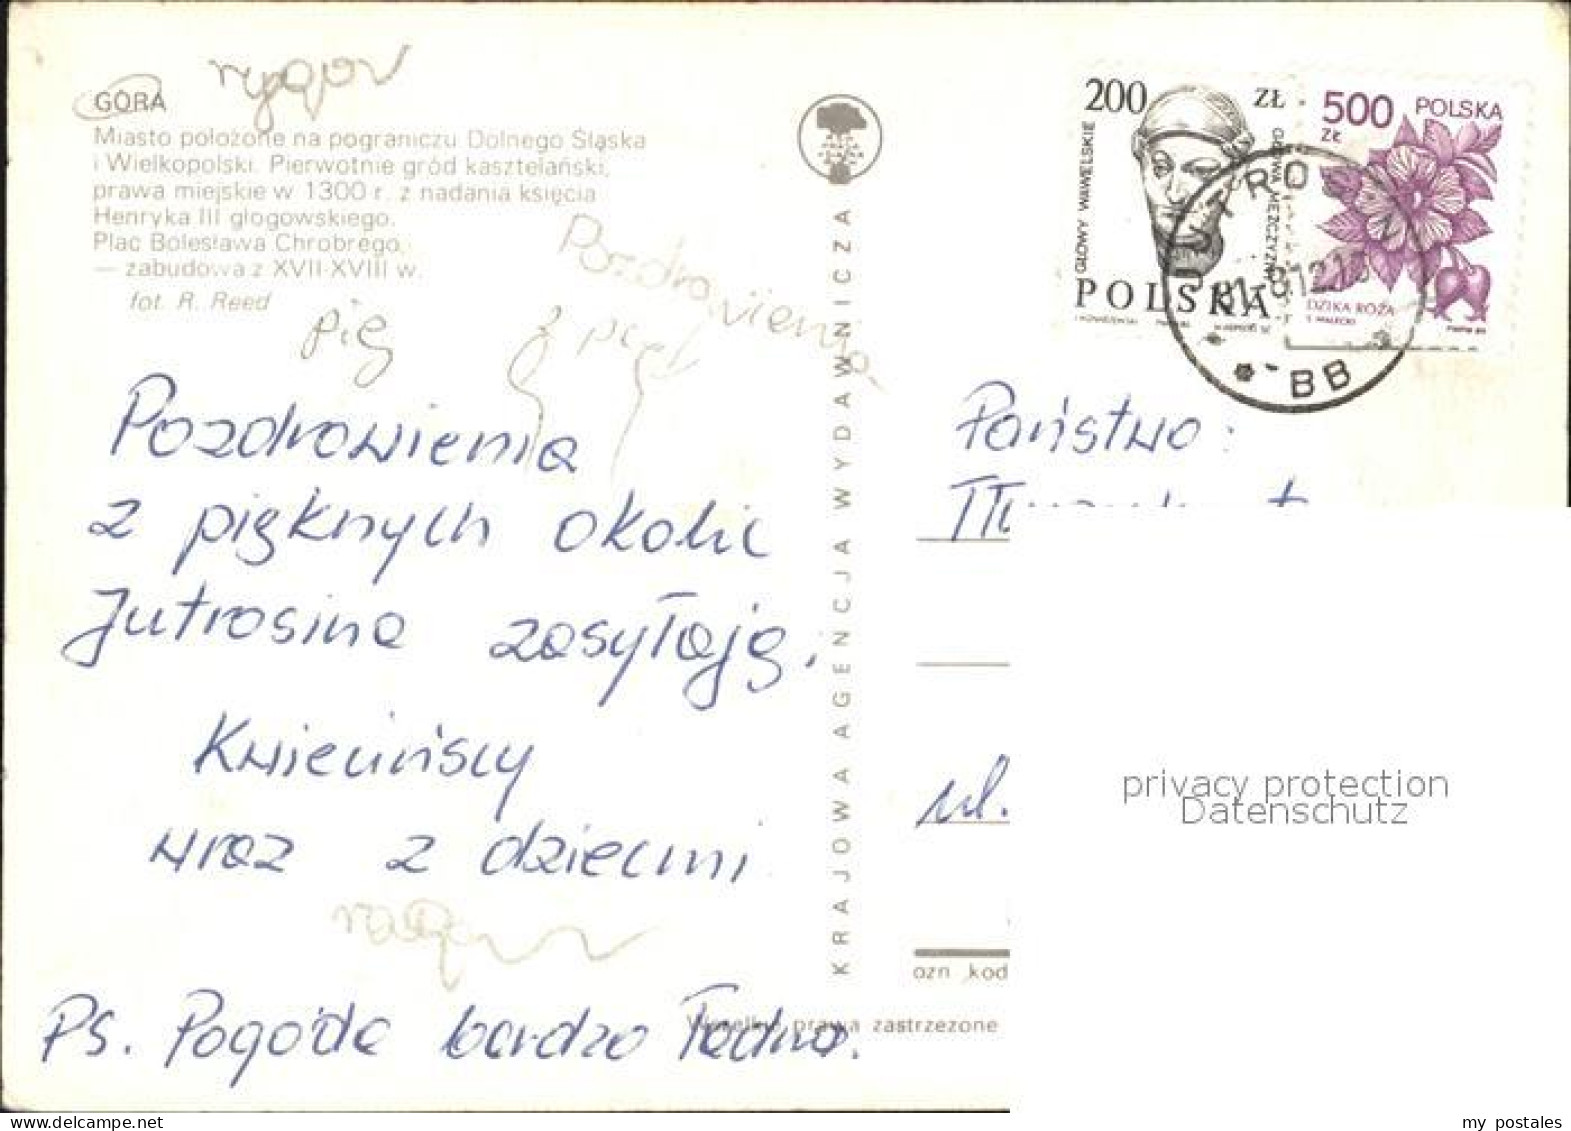 GÓRA
Miasto położone na pograniczu Dolnego Śląska
i Wielkopolski. Pierwotnie gród kasztelański,
prawa miejskie w 1300 r. z nadania księcia
Henryka III głogowskiego.
Plac Bolesława Chrobrego
— zabudowa z XVII-XVIII w.
fot. R. Reed
Pozdrowienia
z
pię
Pozdrowienia
z pięknych okolic
Jutrosina zasyłają,
Kwiecińscy
wraz z dziećmi
Ps. Pogoda bardzo ładna.
KRAJOWA AGENCJA WYDAWNICZA
200 ZŁ
GŁOWY WAWELSKIE
GŁOWA MĘŻCZYZNY
POLSKA
500 POLSKA
ZŁ
DZIKA RÓŻA
BB
Państwo:
ul.
ozn. kod
Wszelkie prawa zastrzeżone
privacy protection
Datenschutz
my postales